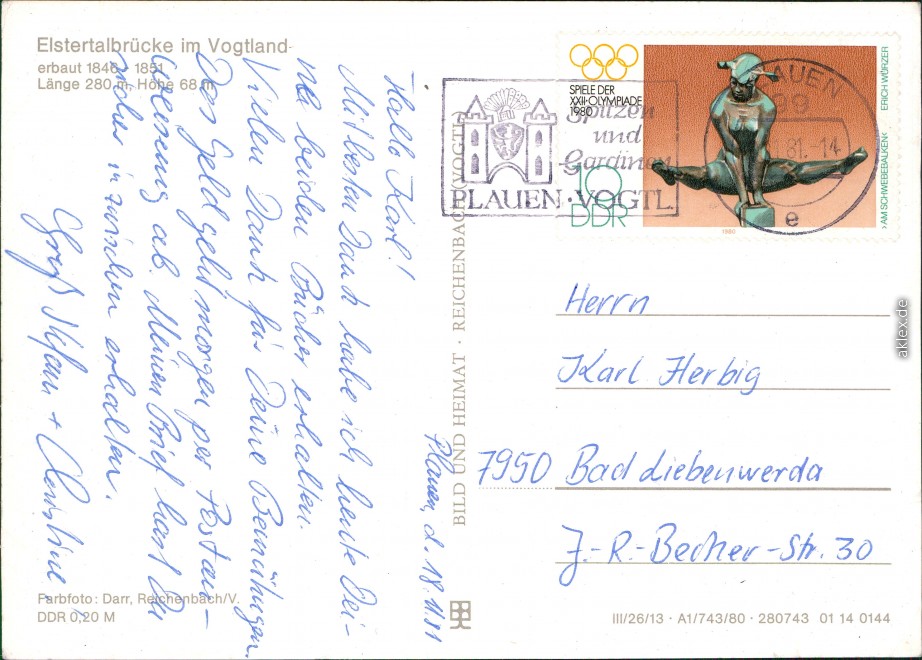 Elstertalbrücke im Vogtland
erbaut 1846 - 1851
Länge 280 m, Höhe 68 m
Plauen, d. 18.11.81
Hallo Karl!
Mit bestem Dank habe ich heute Dei-
ne beiden Bücher erhalten.
Vielen Dank für Deine Bemühungen.
Das Geld geht morgen per Postan-
weisung ab. Meinen Brief hast Du
sicher inzwischen erhalten.
Gruß Stefan + Christine
Farbfoto: Darr, Reichenbach/V.
DDR 0,20 M
BILD UND HEIMAT · REICHENBACH (VOGTL)
SPIELE DER
XXII·OLYMPIADE
1980
10
DDR
1980
ERICH WÜRZER
›AM SCHWEBEBALKEN‹
Spitzen
und
Gardinen
PLAUEN·VOGTL.
PLAUEN
99
81.-14
e
Herrn
Karl Herbig
7950 Bad Liebenwerda
J.-R.-Becher-Str. 30
III/26/13 · A1/743/80 · 280743 01 14 0144
aklex.de